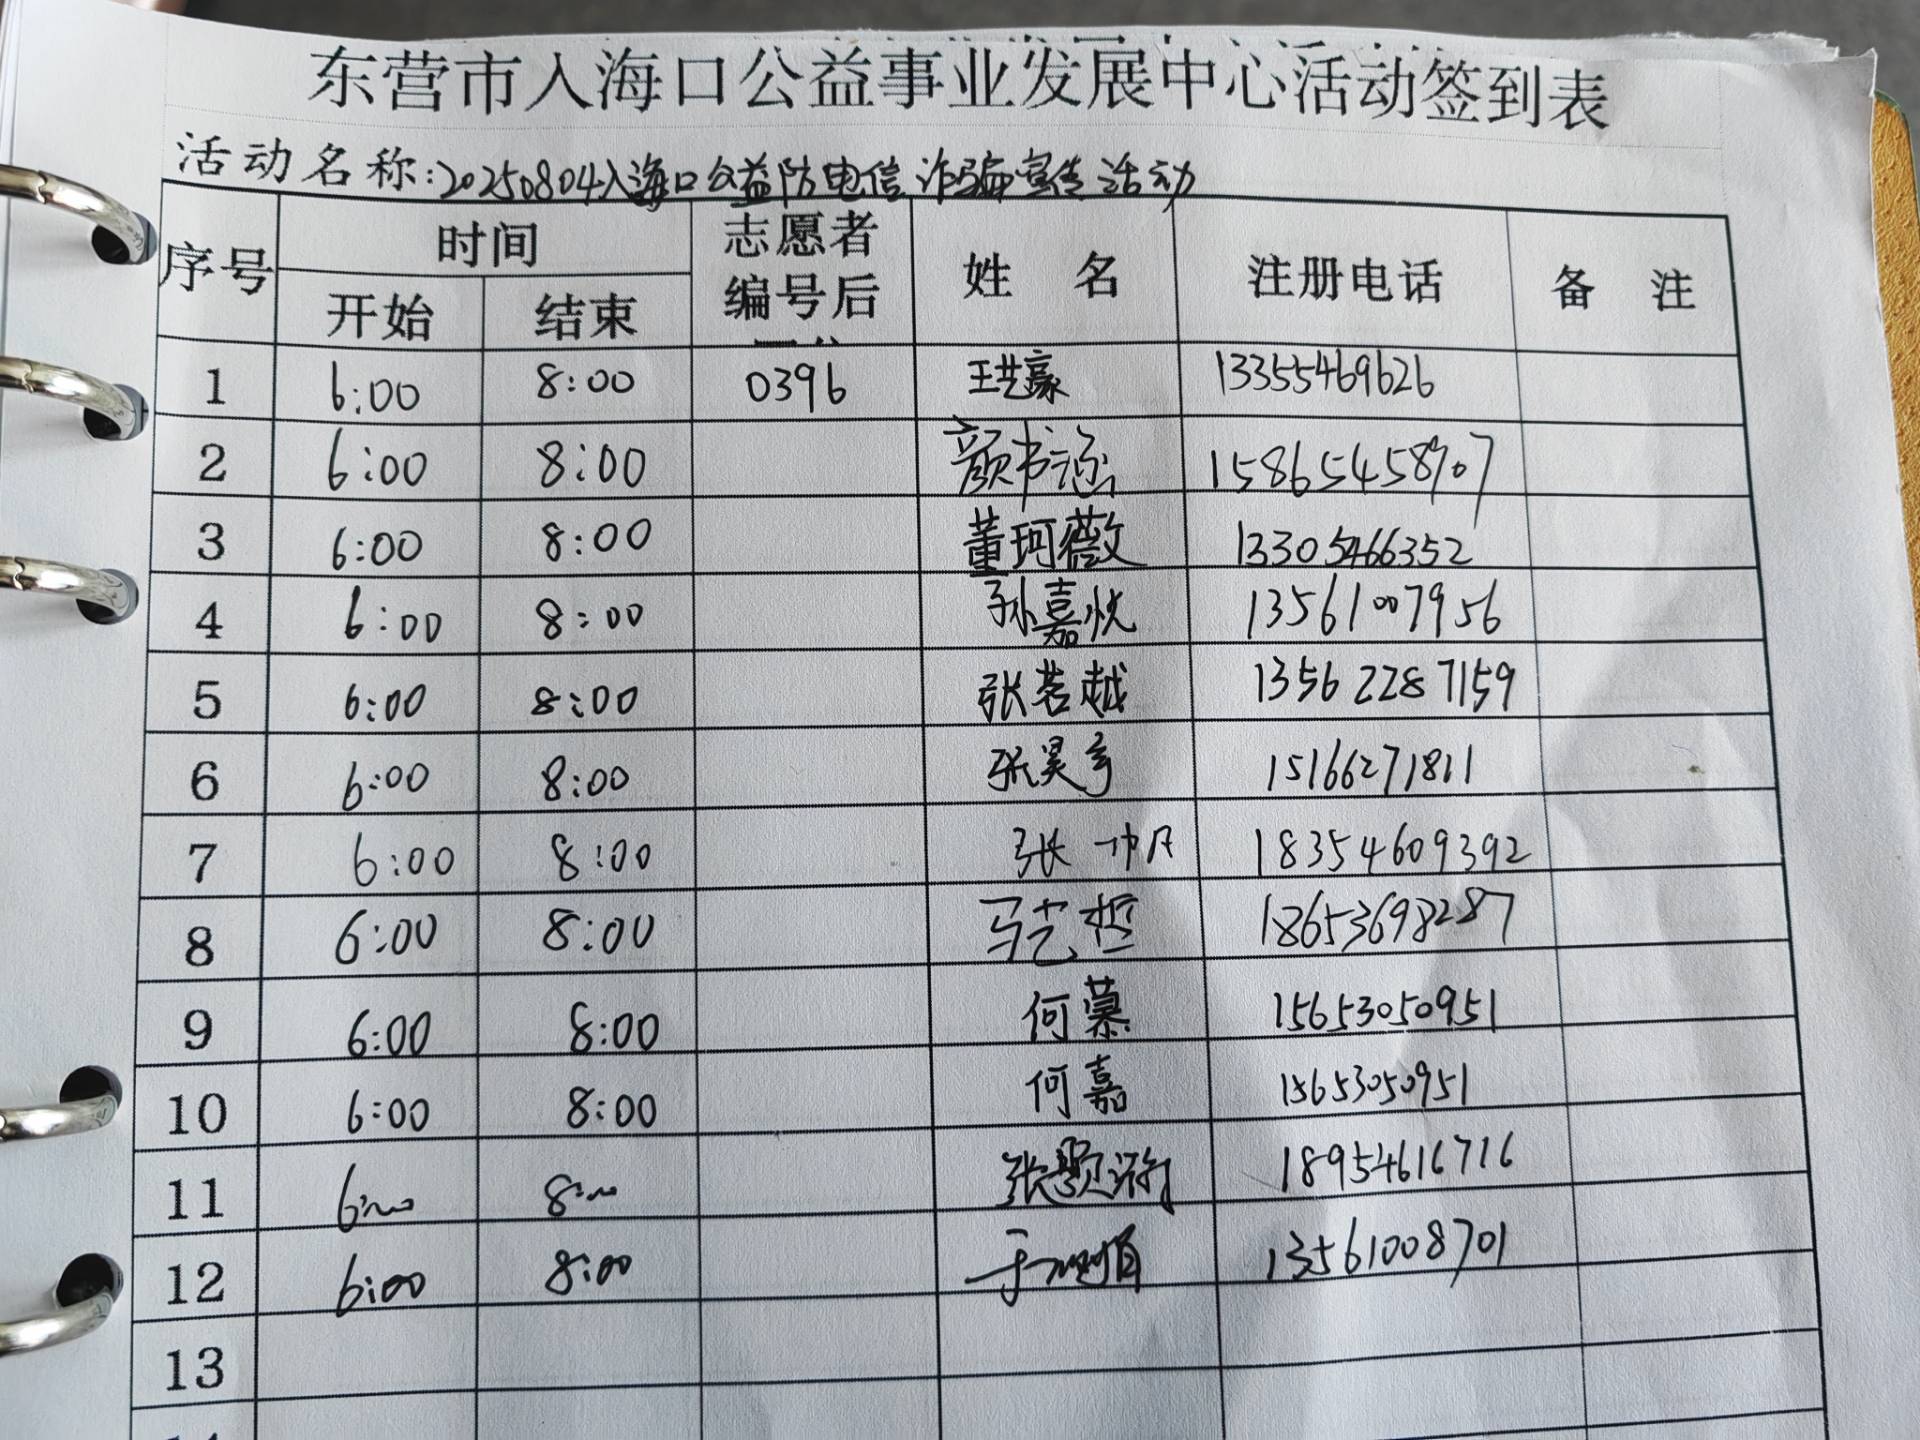 东营市入海口公益事业发展中心活动签到表
活动名称:20250804入海口公益防电信诈骗宣传活动
序号 时间 志愿者编号后 姓 名 注册电话 备 注
开始 结束
1 6:00 8:00 0396 王艺豪 13355469626
2 6:00 8:00 颜书涵 15865458907
3 6:00 8:00 董珂薇 13305466352
4 6:00 8:00 孙嘉悦 13561007956
5 6:00 8:00 张若越 13562287159
6 6:00 8:00 张昊宇 15166271811
7 6:00 8:00 张一帅 18354609392
8 6:00 8:00 马艺哲 18653698287
9 6:00 8:00 何慕 15653050951
10 6:00 8:00 何嘉 15653050951
11 6:00 8:00 张 18954616716
12 6:00 8:00 13561008701
13